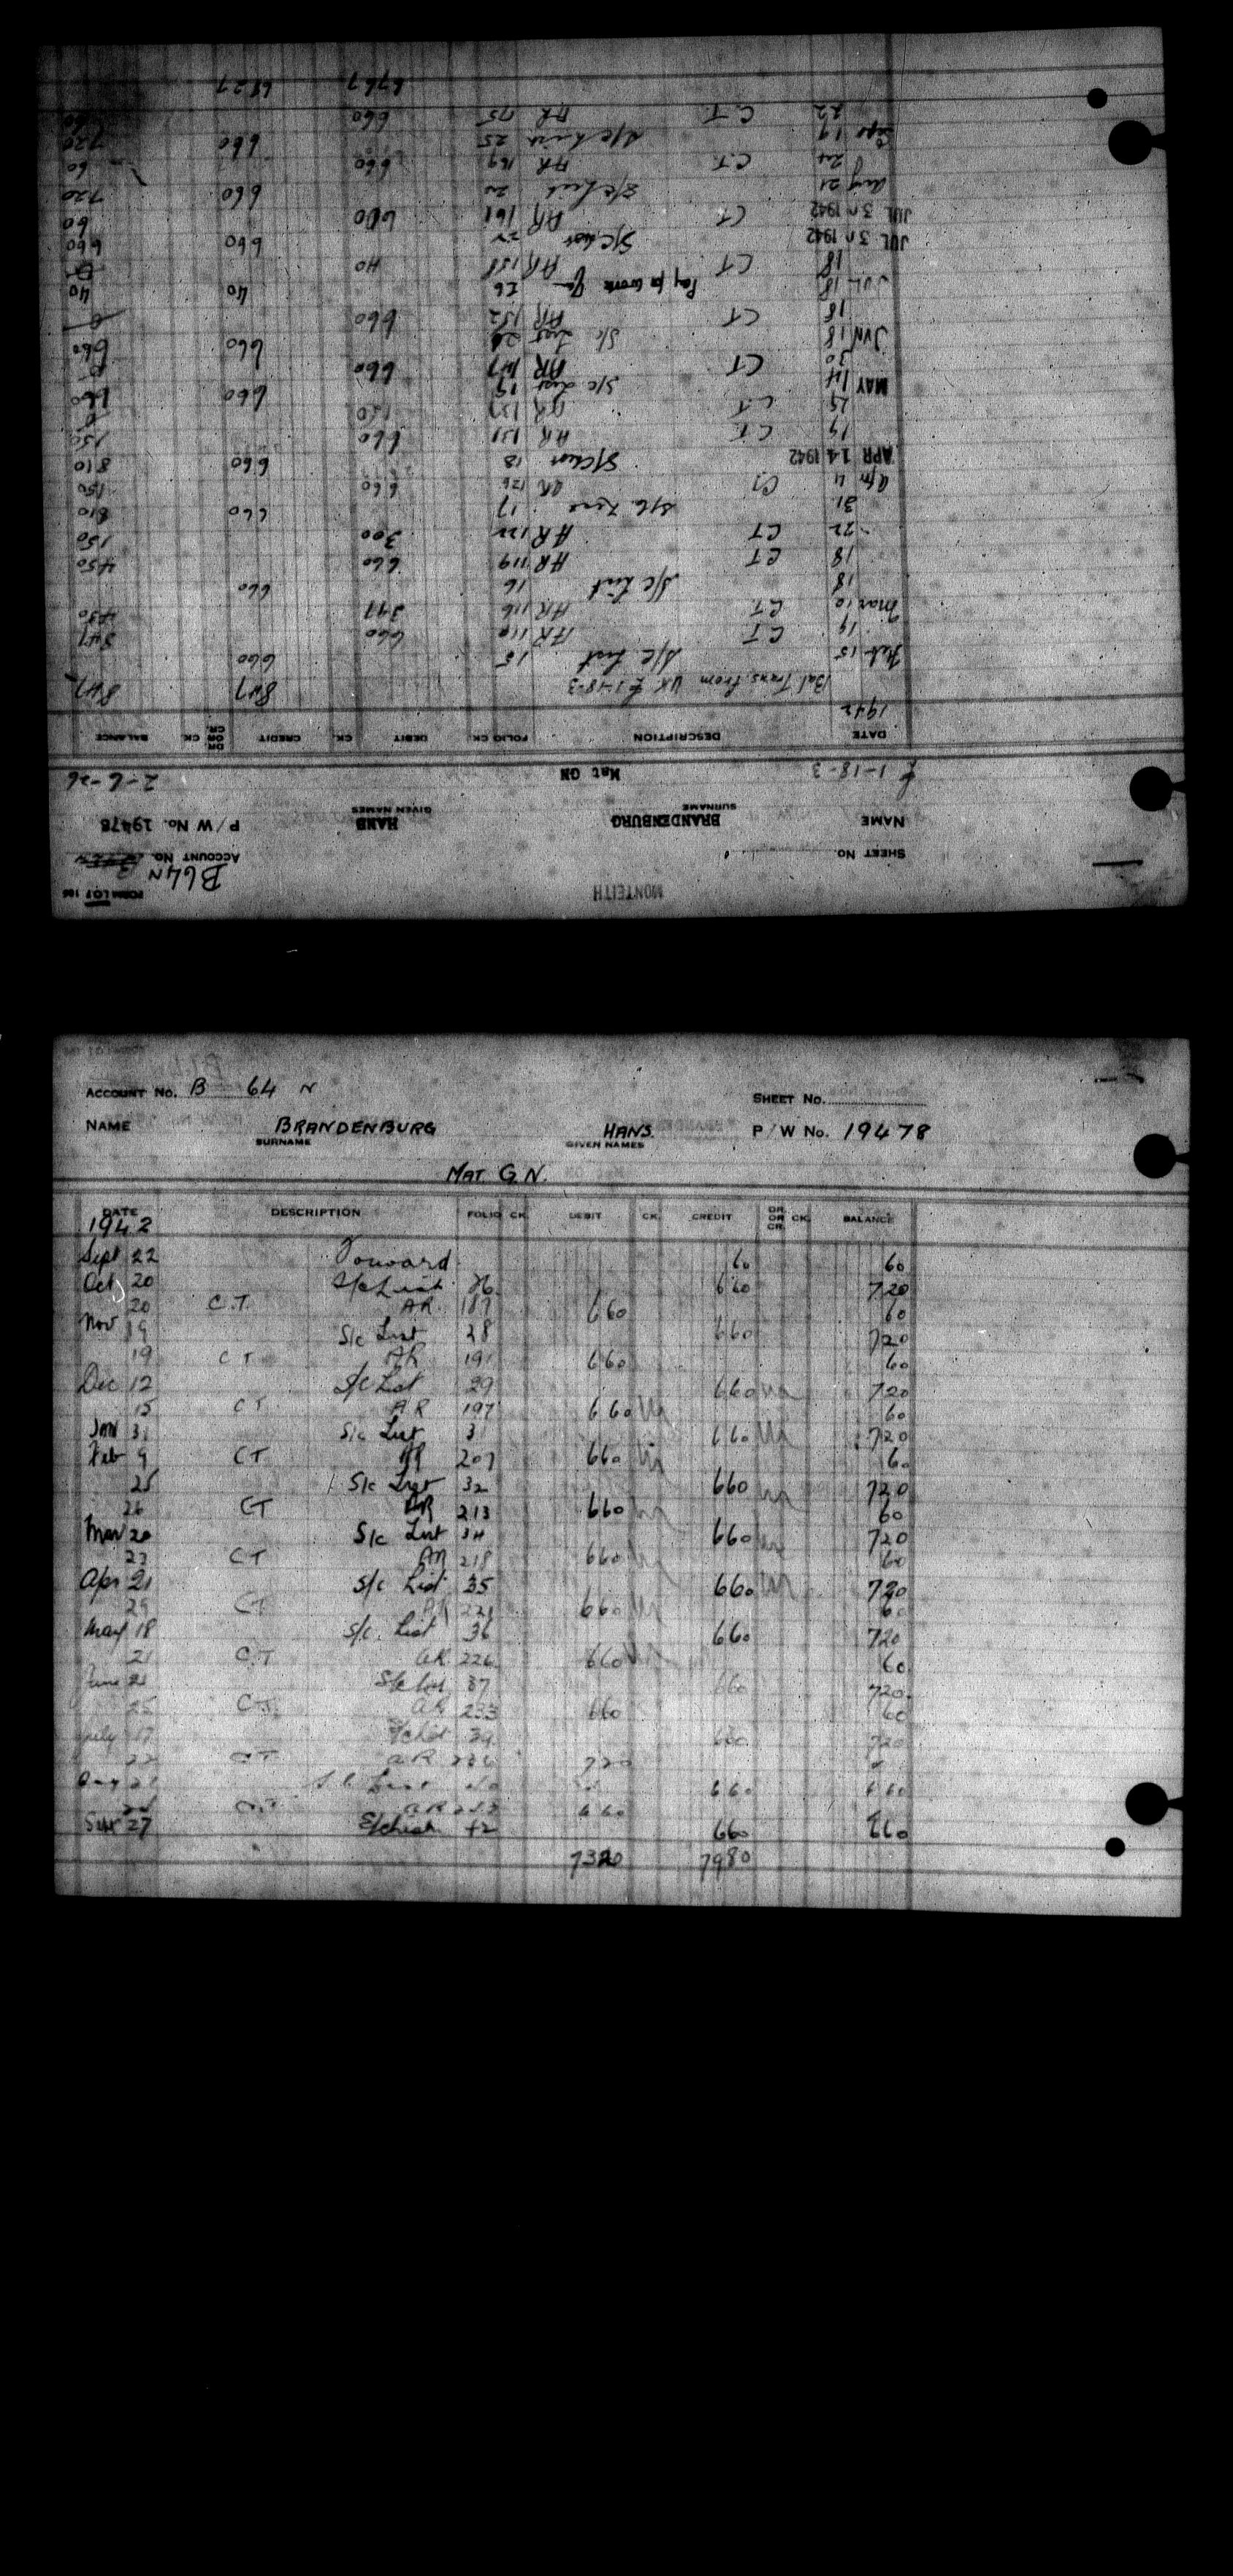 MONTEITH
FORM LOF 106
SHEET No. 1 ACCOUNT No. B64N
NAME BRANDENBURG HANS P/W No. 19478
SURNAME GIVEN NAMES
£ 1-18-3 Mat GN 2-6-26
DATE DESCRIPTION FOLIO CK. DEBIT CK. CREDIT DR OR CR. CK. BALANCE
1942
Bal Trans. from UK £1-18-3 847 847
Feb 15 S/C List 15 660
19 C.T. AR 110 660 847
Mar 10 C.T. AR 116 397 450
18 S/C List 16 660
18 CT AR 119 660 450
22 CT AR 122 300 150
31 S/C List 17 660 810
Apr 4 CT AR 126 660 150
APR 14 1942 S/C List 18 660 810
19 C.T. AR 131 660 150
25 C.T. AR 137 150
MAY 14 S/C List 19 660 660
30 CT AR 147 660
JUN 18 S/C List 660 660
18 CT AR 152 660
JUL 18 Pay for work 26 40 40
18 CT AR 158 40
JUL 30 1942 S/C List 660 660
JUL 30 1942 CT AR 161 600 60
Aug 21 S/C List 660 720
24 C.T. AR 169 660 60
Sept 17 S/C List 25 660 720
22 C.T. AR 175 660 60
6767 6827
ACCOUNT No. B 64 N SHEET No.
NAME BRANDENBURG HANS. P/W No. 19478
SURNAME GIVEN NAMES
MAT G.N.
DATE DESCRIPTION FOLIO CK. DEBIT CK. CREDIT DR. OR CR. CK. BALANCE
1942
Sept 22 Forward 60 60
Oct 20 S/c List 26 660 720
20 C.T. AR. 187 660 60
Nov 19 S/c List 28 660 720
19 C T AR 191 660 60
Dec 12 S/c List 29 660 720
15 C T AR 197 660 60
Jan 31 S/c List 31 660 720
Feb 9 CT AR 207 660 60
25 S/c List 32 660 720
26 CT AR 213 660 60
Mar 20 S/c List 34 660 720
23 CT AR 218 660 60
Apr 21 S/c List 35 660 720
29 CT AR 221 660 60
May 18 S/c List 36 660 720
21 C.T AR 226 660 60
June 21 S/c List 37 660 720
25 C.T. AR 233 660 60
July 17 S/c List 39 660 720
22 CT AR 236 720
Aug 21 S.C. List 40 660 660
CT AR 660
Sept 27 S/c List 42 660 660
7320 7980